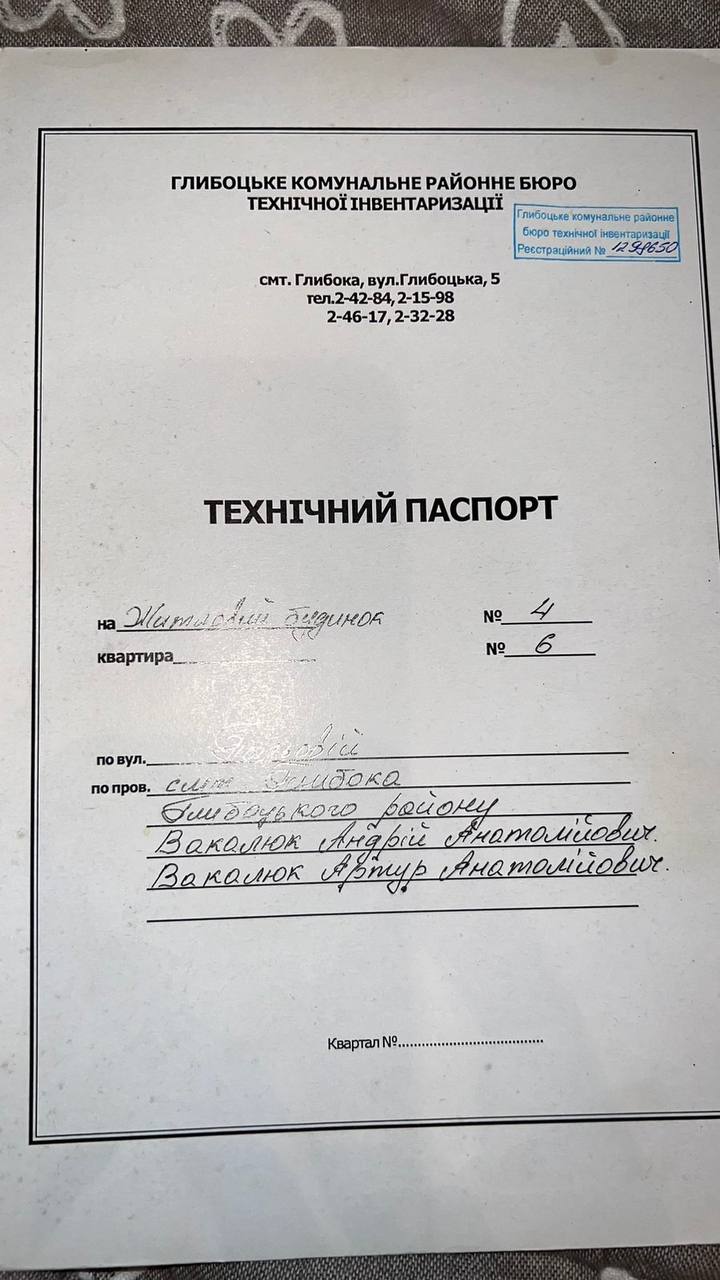 ГЛИБОЦЬКЕ КОМУНАЛЬНЕ РАЙОННЕ БЮРО
ТЕХНІЧНОЇ ІНВЕНТАРИЗАЦІЇ
Глибоцьке комунальне районне
бюро технічної інвентаризації
Реєстраційний №
смт. Глибока, вул.Глибоцька, 5
тел.2-42-84, 2-15-98
2-46-17, 2-32-28
ТЕХНІЧНИЙ ПАСПОРТ
на Житловий будинок № 4
квартира № 6
по вул.
по пров. смт Глибока
Глибоцького району
Вакалюк Андрій Анатолійович.
Вакалюк Артур Анатолійович.
Квартал №